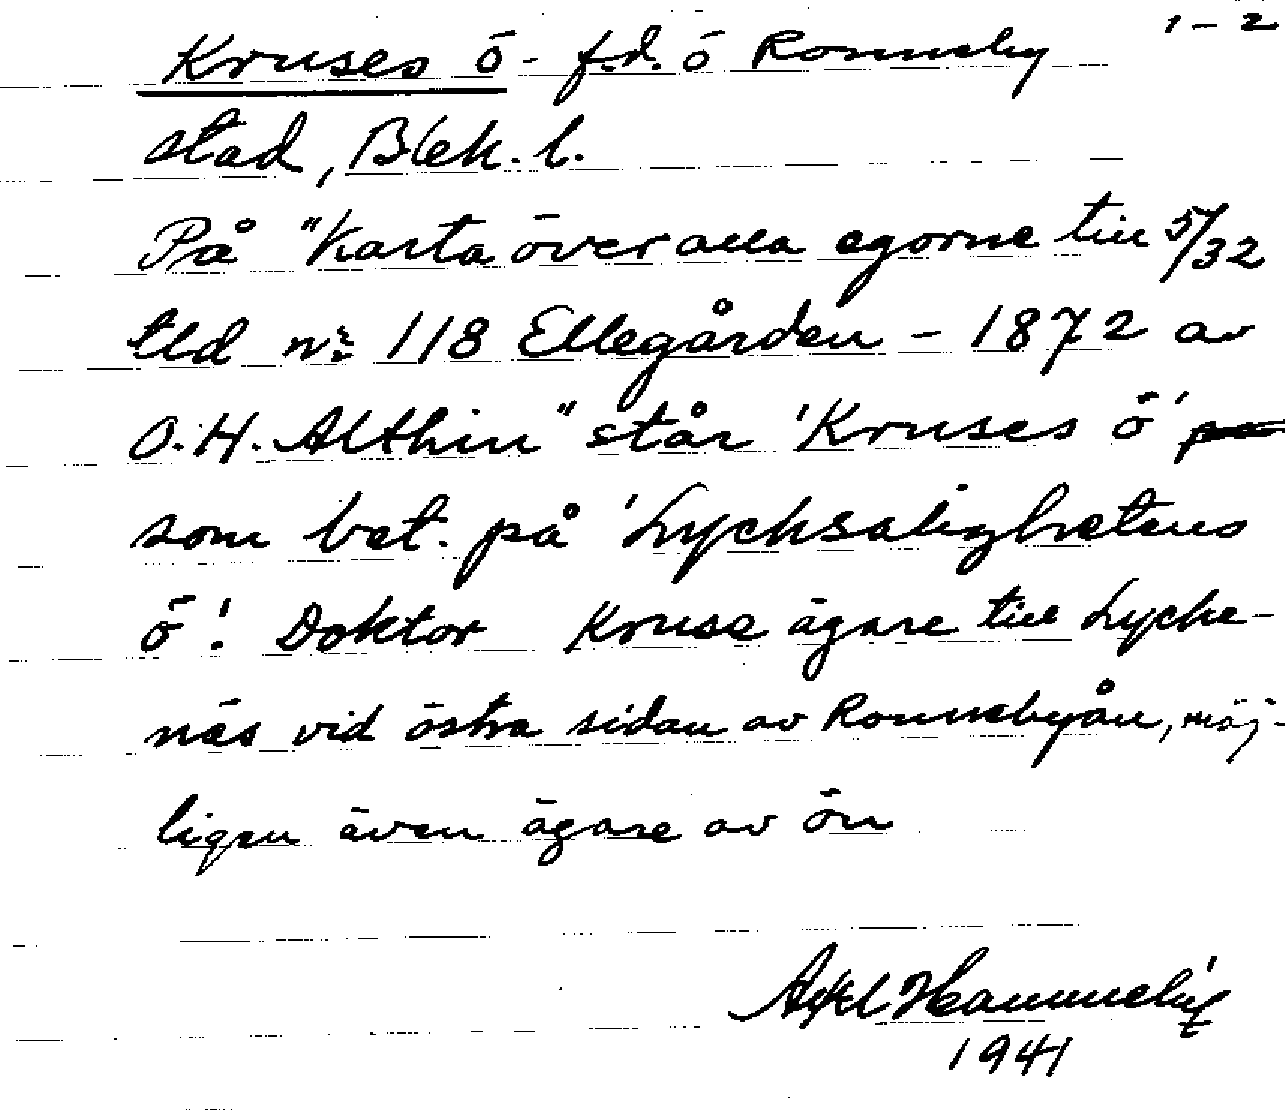 1-2
Kruses ö - f.d. ö Ronneby
stad, Blek. l.
På "Karta över alla egorne till 5/32
tld nr: 118 Ellegården - 1872 av
O.H. Althin" står 'Kruses ö'
som bet. på 'Lycksalighetens
ö'. Doktor Kruse ägare till Lycke-
näs vid östra sidan av Ronnebyån, möj-
ligen även ägare av ön
Axel
1941